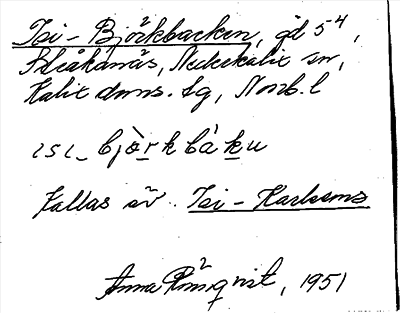 Isi-Björkbacken, gd 5⁴,
Bläkanäs, Nederkalix sn,
Kalix dms. lg, Norrb. l
ɩsɩ_ bjòrkbàku
Kallas äv. Isi-Karlsems
Anna Rönnqvist, 1951